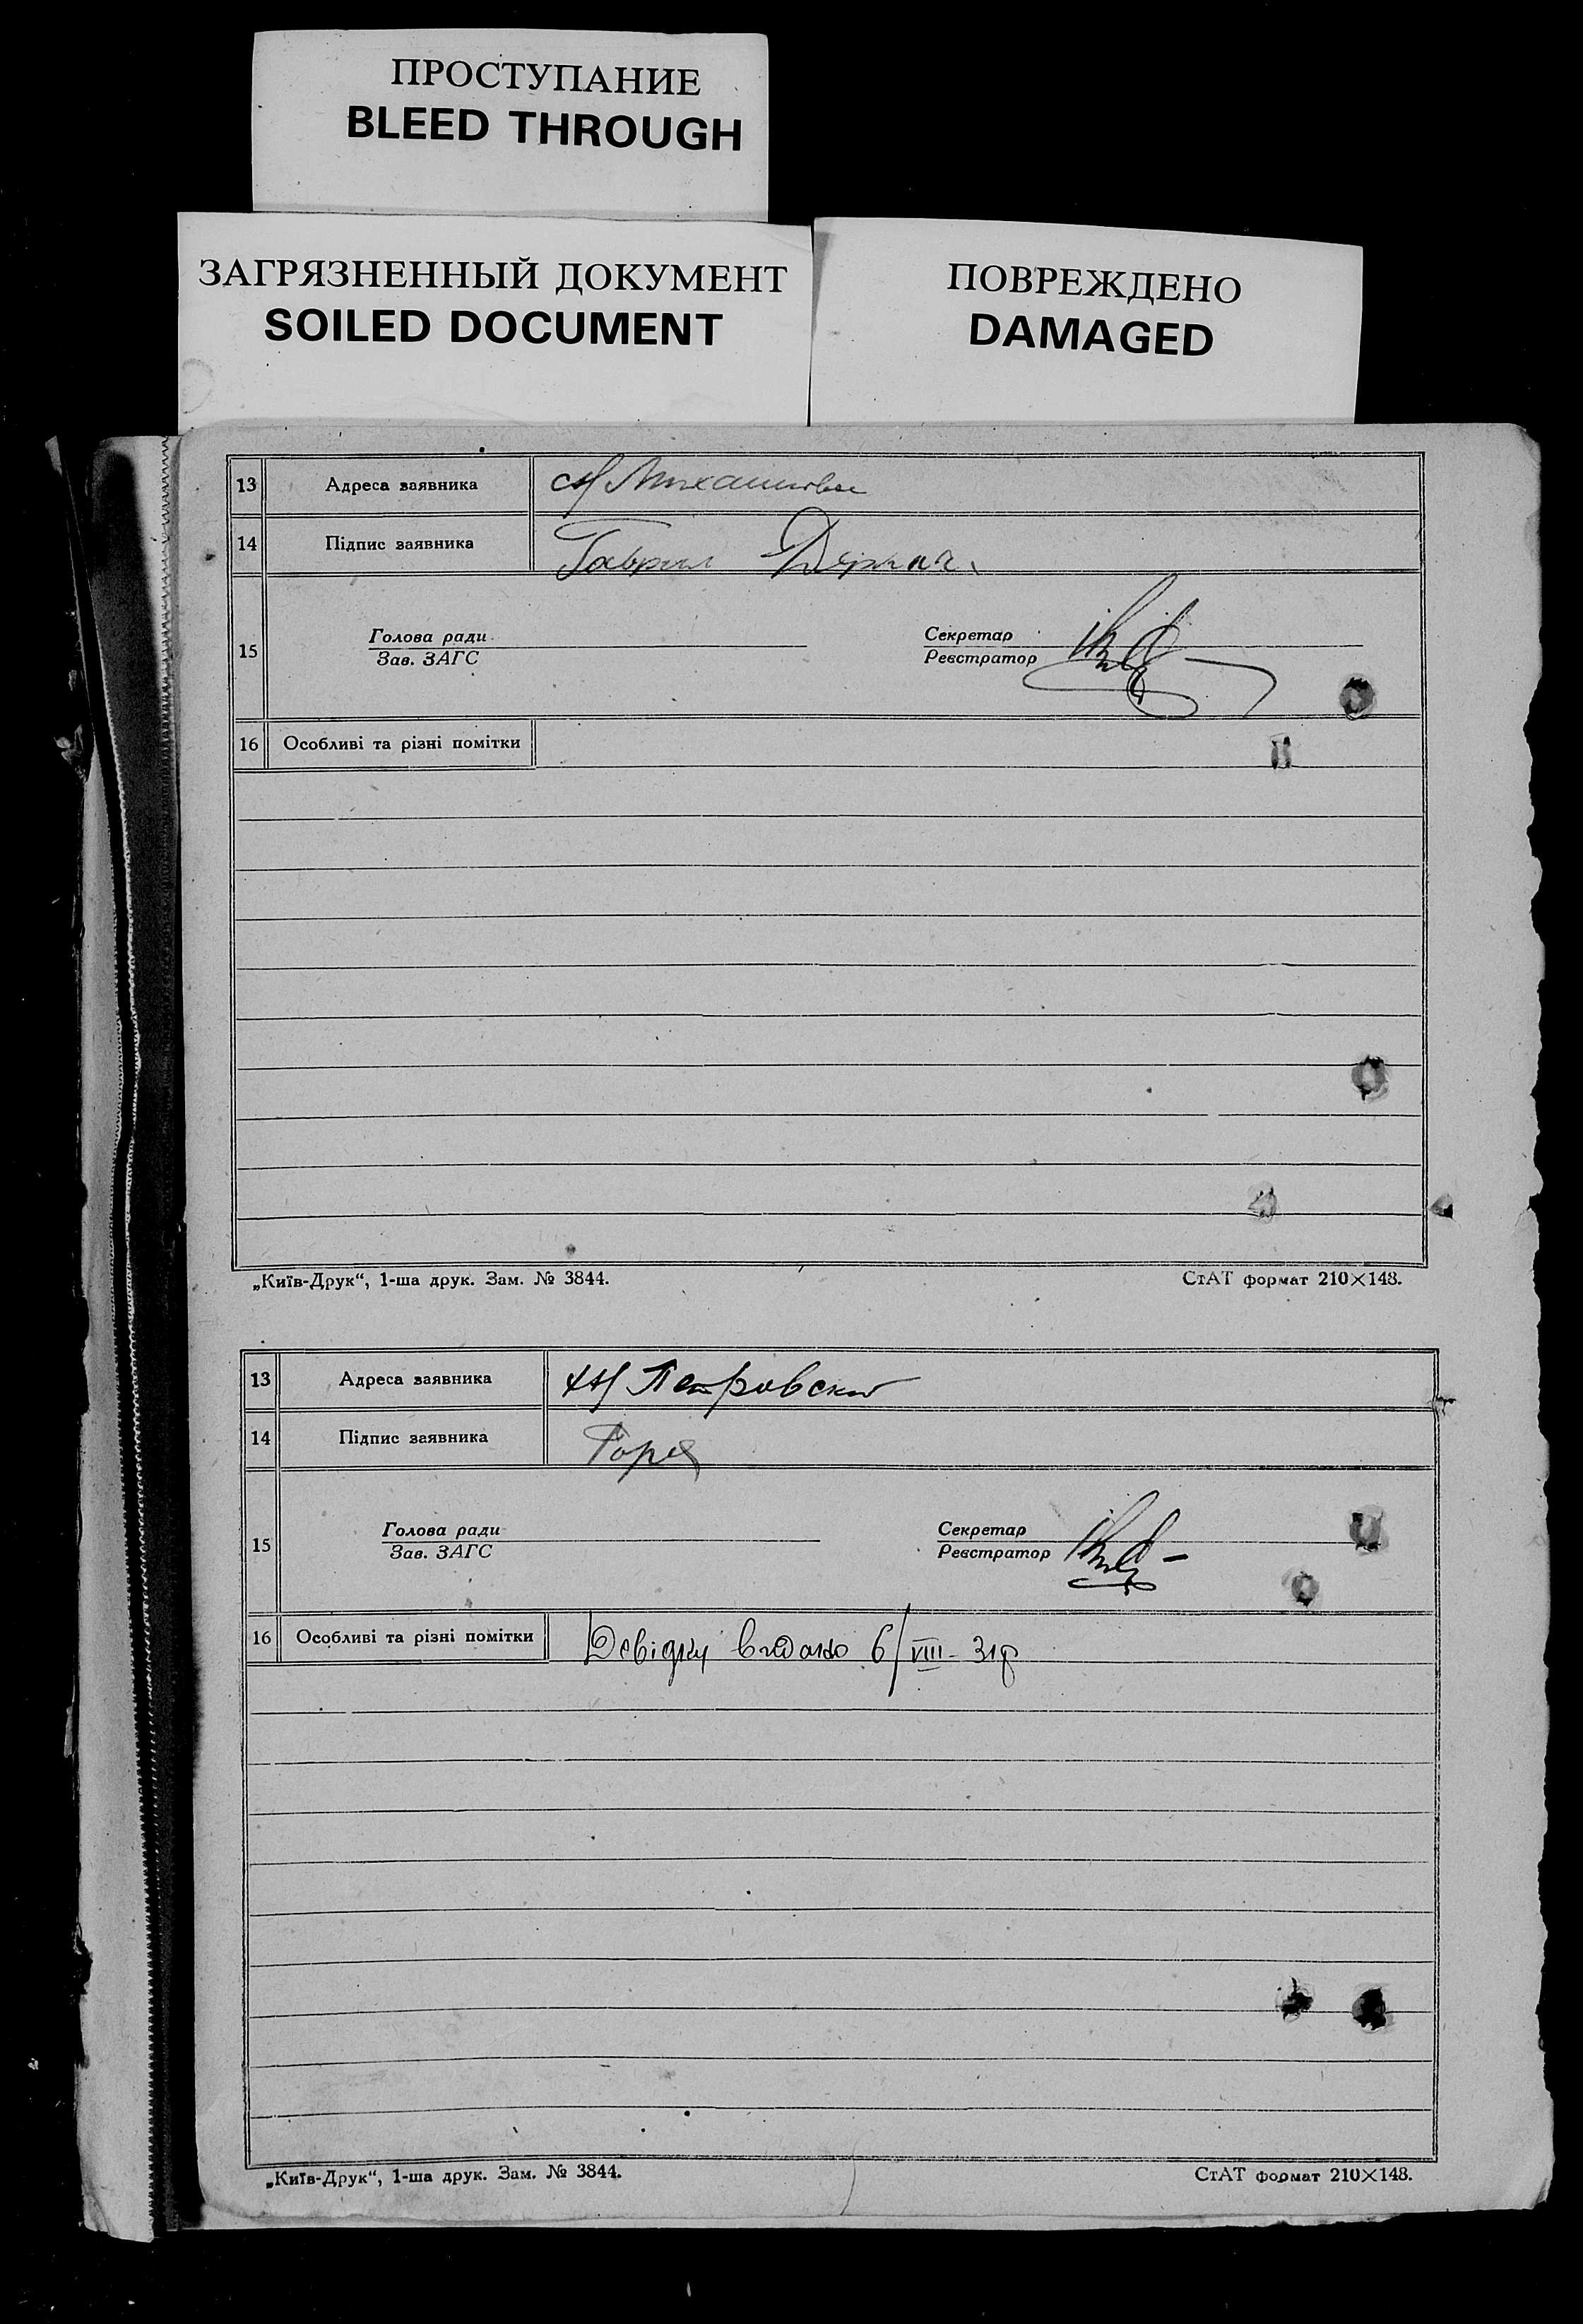 ПРОСТУПАНИЕ
BLEED THROUGH
ЗАГРЯЗНЕННЫЙ ДОКУМЕНТ
SOILED DOCUMENT
ПОВРЕЖДЕНО
DAMAGED
13 Адреса заявника
14 Підпис заявника Гаврил
15 Голова ради Секретар
Зав. ЗАГС Реєстратор
16 Особливі та різні помітки
„Київ-Друк“, 1-ша друк. Зам. № 3844. СтАТ формат 210×148.
13 Адреса заявника
14 Підпис заявника
15 Голова ради Секретар
Зав. ЗАГС Реєстратор
16 Особливі та різні помітки Довідку видано 6/VIII-31р
„Київ-Друк“, 1-ша друк. Зам. № 3844. СтАТ формат 210×148.